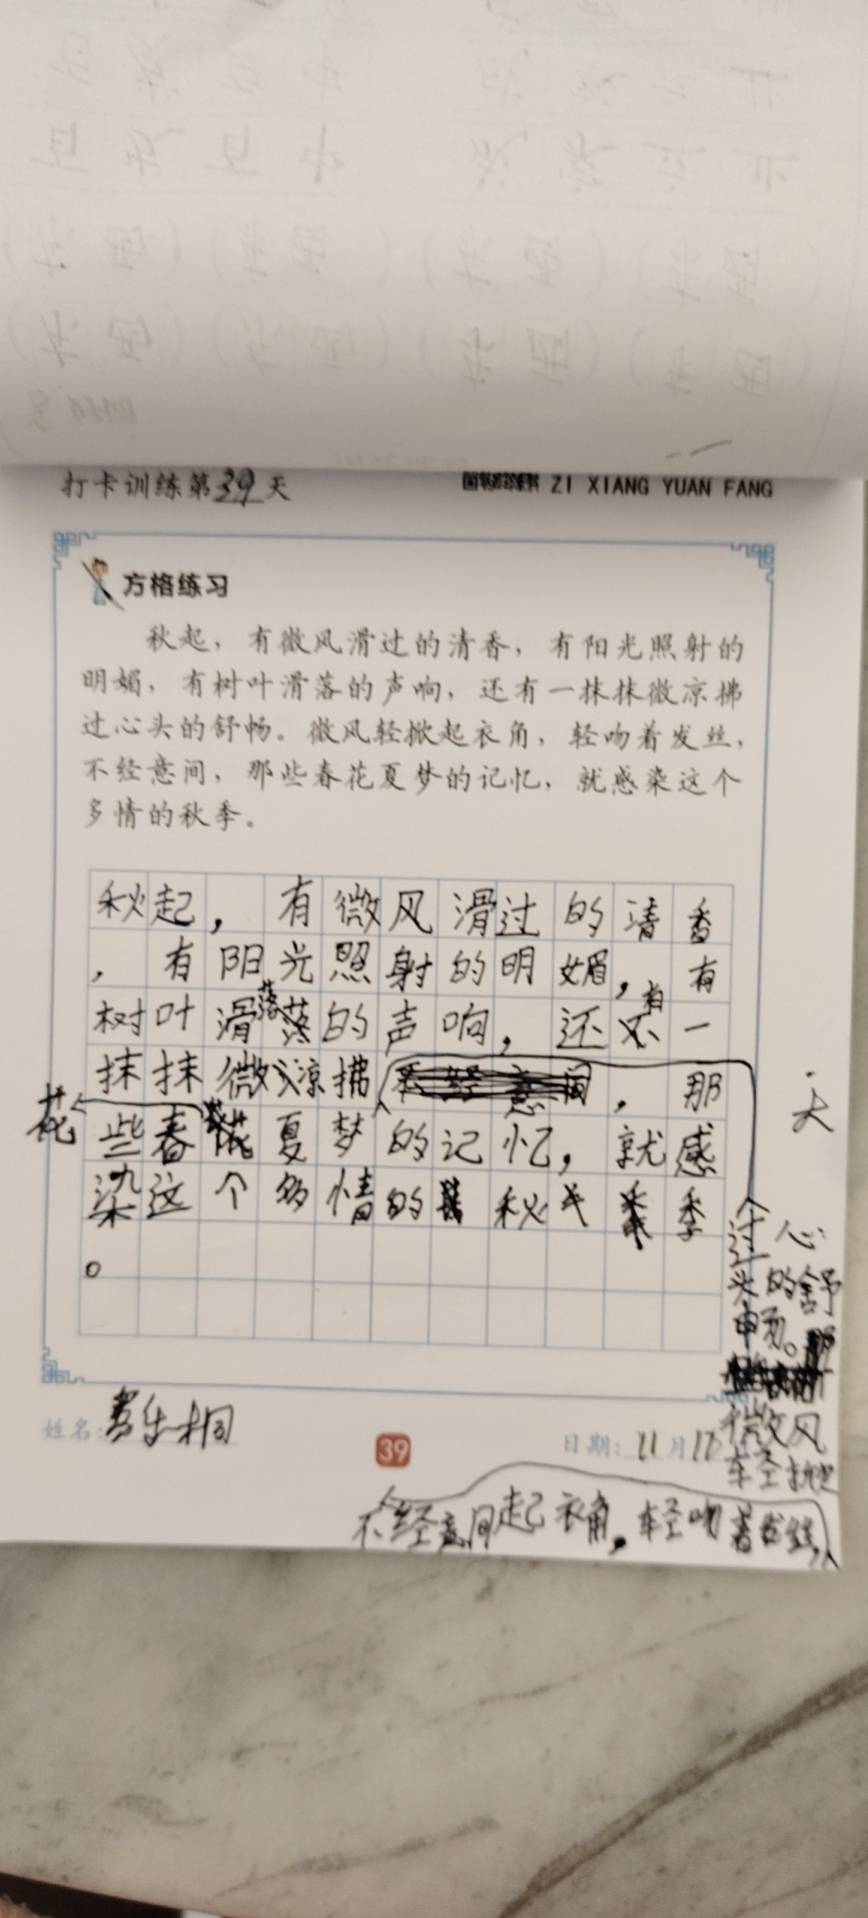 打卡训练第39天
ZI XIANG YUAN FANG
方格练习
秋起，有微风滑过的清香，有阳光照射的
明媚，有树叶滑落的声响，还有一抹抹微凉拂
过心头的舒畅。微风轻掀起衣角，轻吻着发丝，
不经意间，那些春花夏梦的记忆，就感染这个
多情的秋季。
秋起，有微风滑过的清香
，有阳光照射的明媚，有
树叶滑落的声响，还有一
抹抹微凉拂，那
花
些春夏梦的记忆，就感
染这个多情的秋季
。
天
过心
头的舒
畅。
微风
轻掀
不经意间起衣角，轻吻着发丝，
姓名：
39
日期：11月17